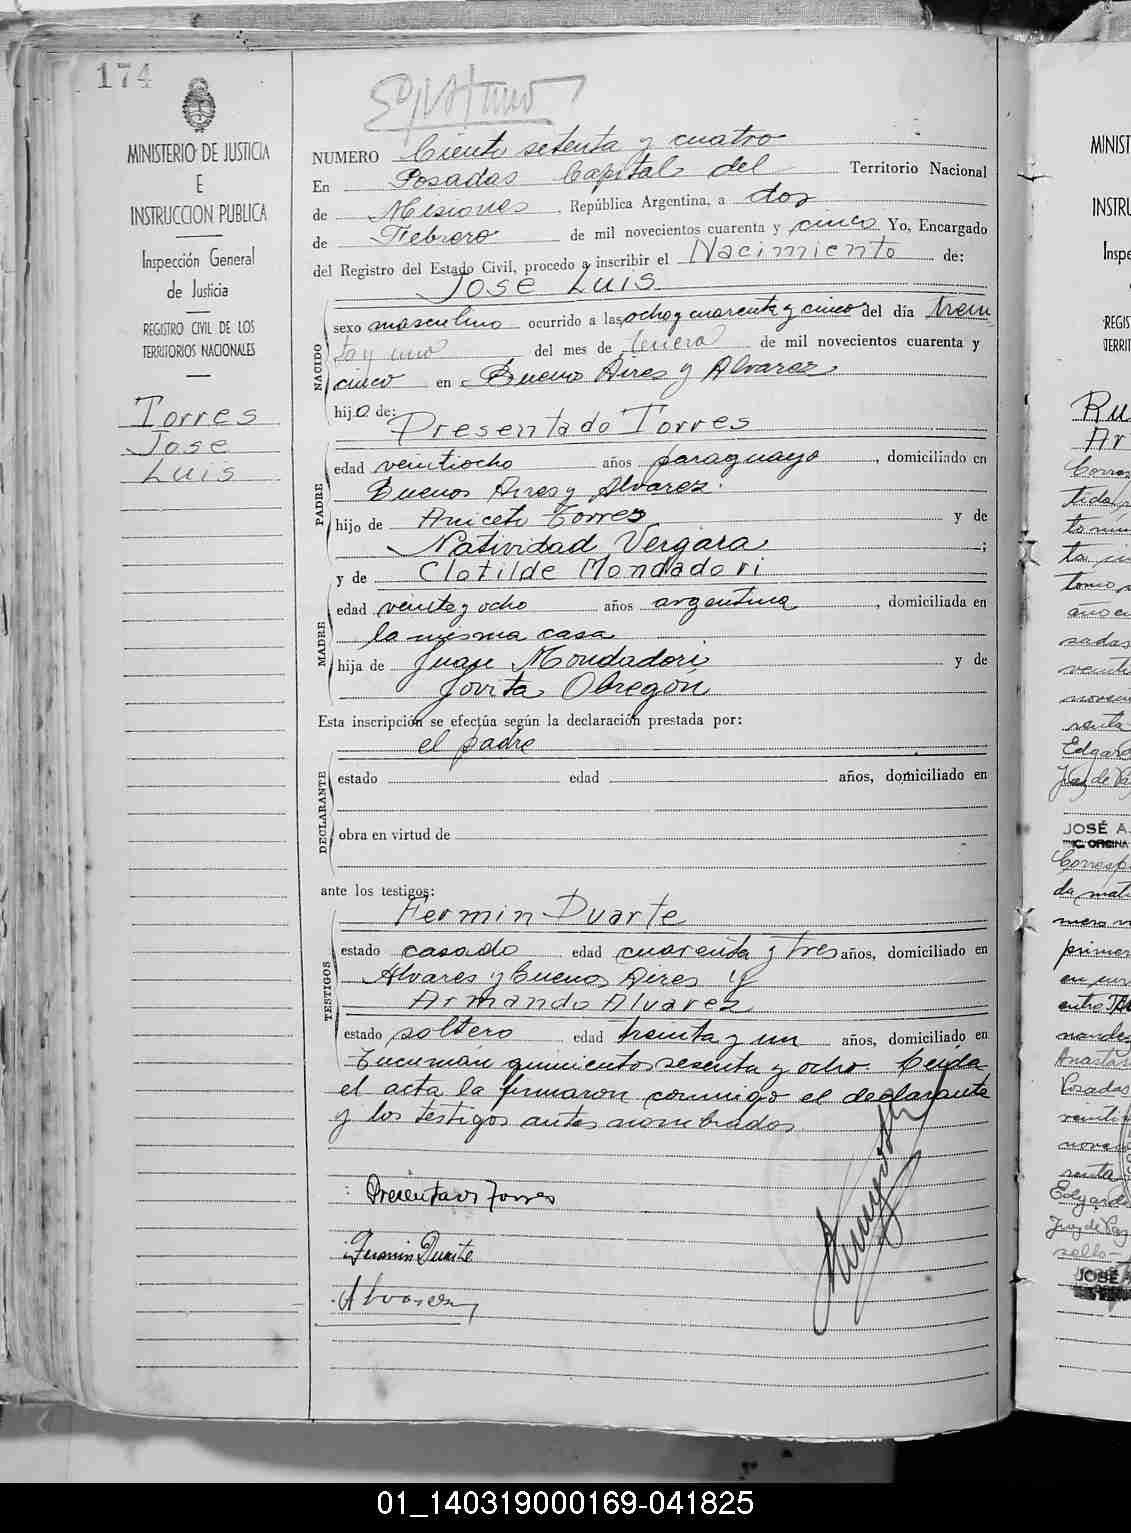 174
MINISTERIO DE JUSTICIA
E
INSTRUCCION PUBLICA
Inspección General
de Justicia
REGISTRO CIVIL DE LOS
TERRITORIOS NACIONALES
Torres
Jose
Luis
NUMERO Ciento setenta y cuatro
En Posadas Capital del Territorio Nacional
de Misiones, República Argentina, a dos
de Febrero de mil novecientos cuarenta y cinco Yo, Encargado
del Registro del Estado Civil, procedo a inscribir el Nacimiento de:
Jose Luis
NACIDO
sexo masculino ocurrido a las ocho y cuarenta y cinco del día trein
ta y uno del mes de Enero de mil novecientos cuarenta y
cinco en Buenos Aires y Alvarez
hijo de:
Presentado Torres
PADRE
edad veintiocho años paraguayo, domiciliado en
Buenos Aires y Alvarez.
hijo de Aniceto Torres y de
Natividad Vergara;
y de Clotilde Mondadori
MADRE
edad veinte y ocho años argentina, domiciliada en
la misma casa
hija de Juan Mondadori y de
Jovita Obregon
Esta inscripción se efectúa según la declaración prestada por:
el padre
DECLARANTE
estado edad años, domiciliado en
obra en virtud de
ante los testigos:
Fermin Duarte
TESTIGOS
estado casado edad cuarenta y tres años, domiciliado en
Alvares y Buenos Aires y
Armando Alvarez
estado soltero edad treinta y un años, domiciliado en
Tucumán quinientos sesenta y ocho. Leida
el acta la firmaron conmigo el declarante
y los testigos antes nombrados.
Presentado Torres
Fermin Duarte
A Alvarez
MINIST
INSTRU
Inspe
REGIS
TERRIT
Ru
Ar
JOSÉ A.
JOSÉ A
01_140319000169-041825